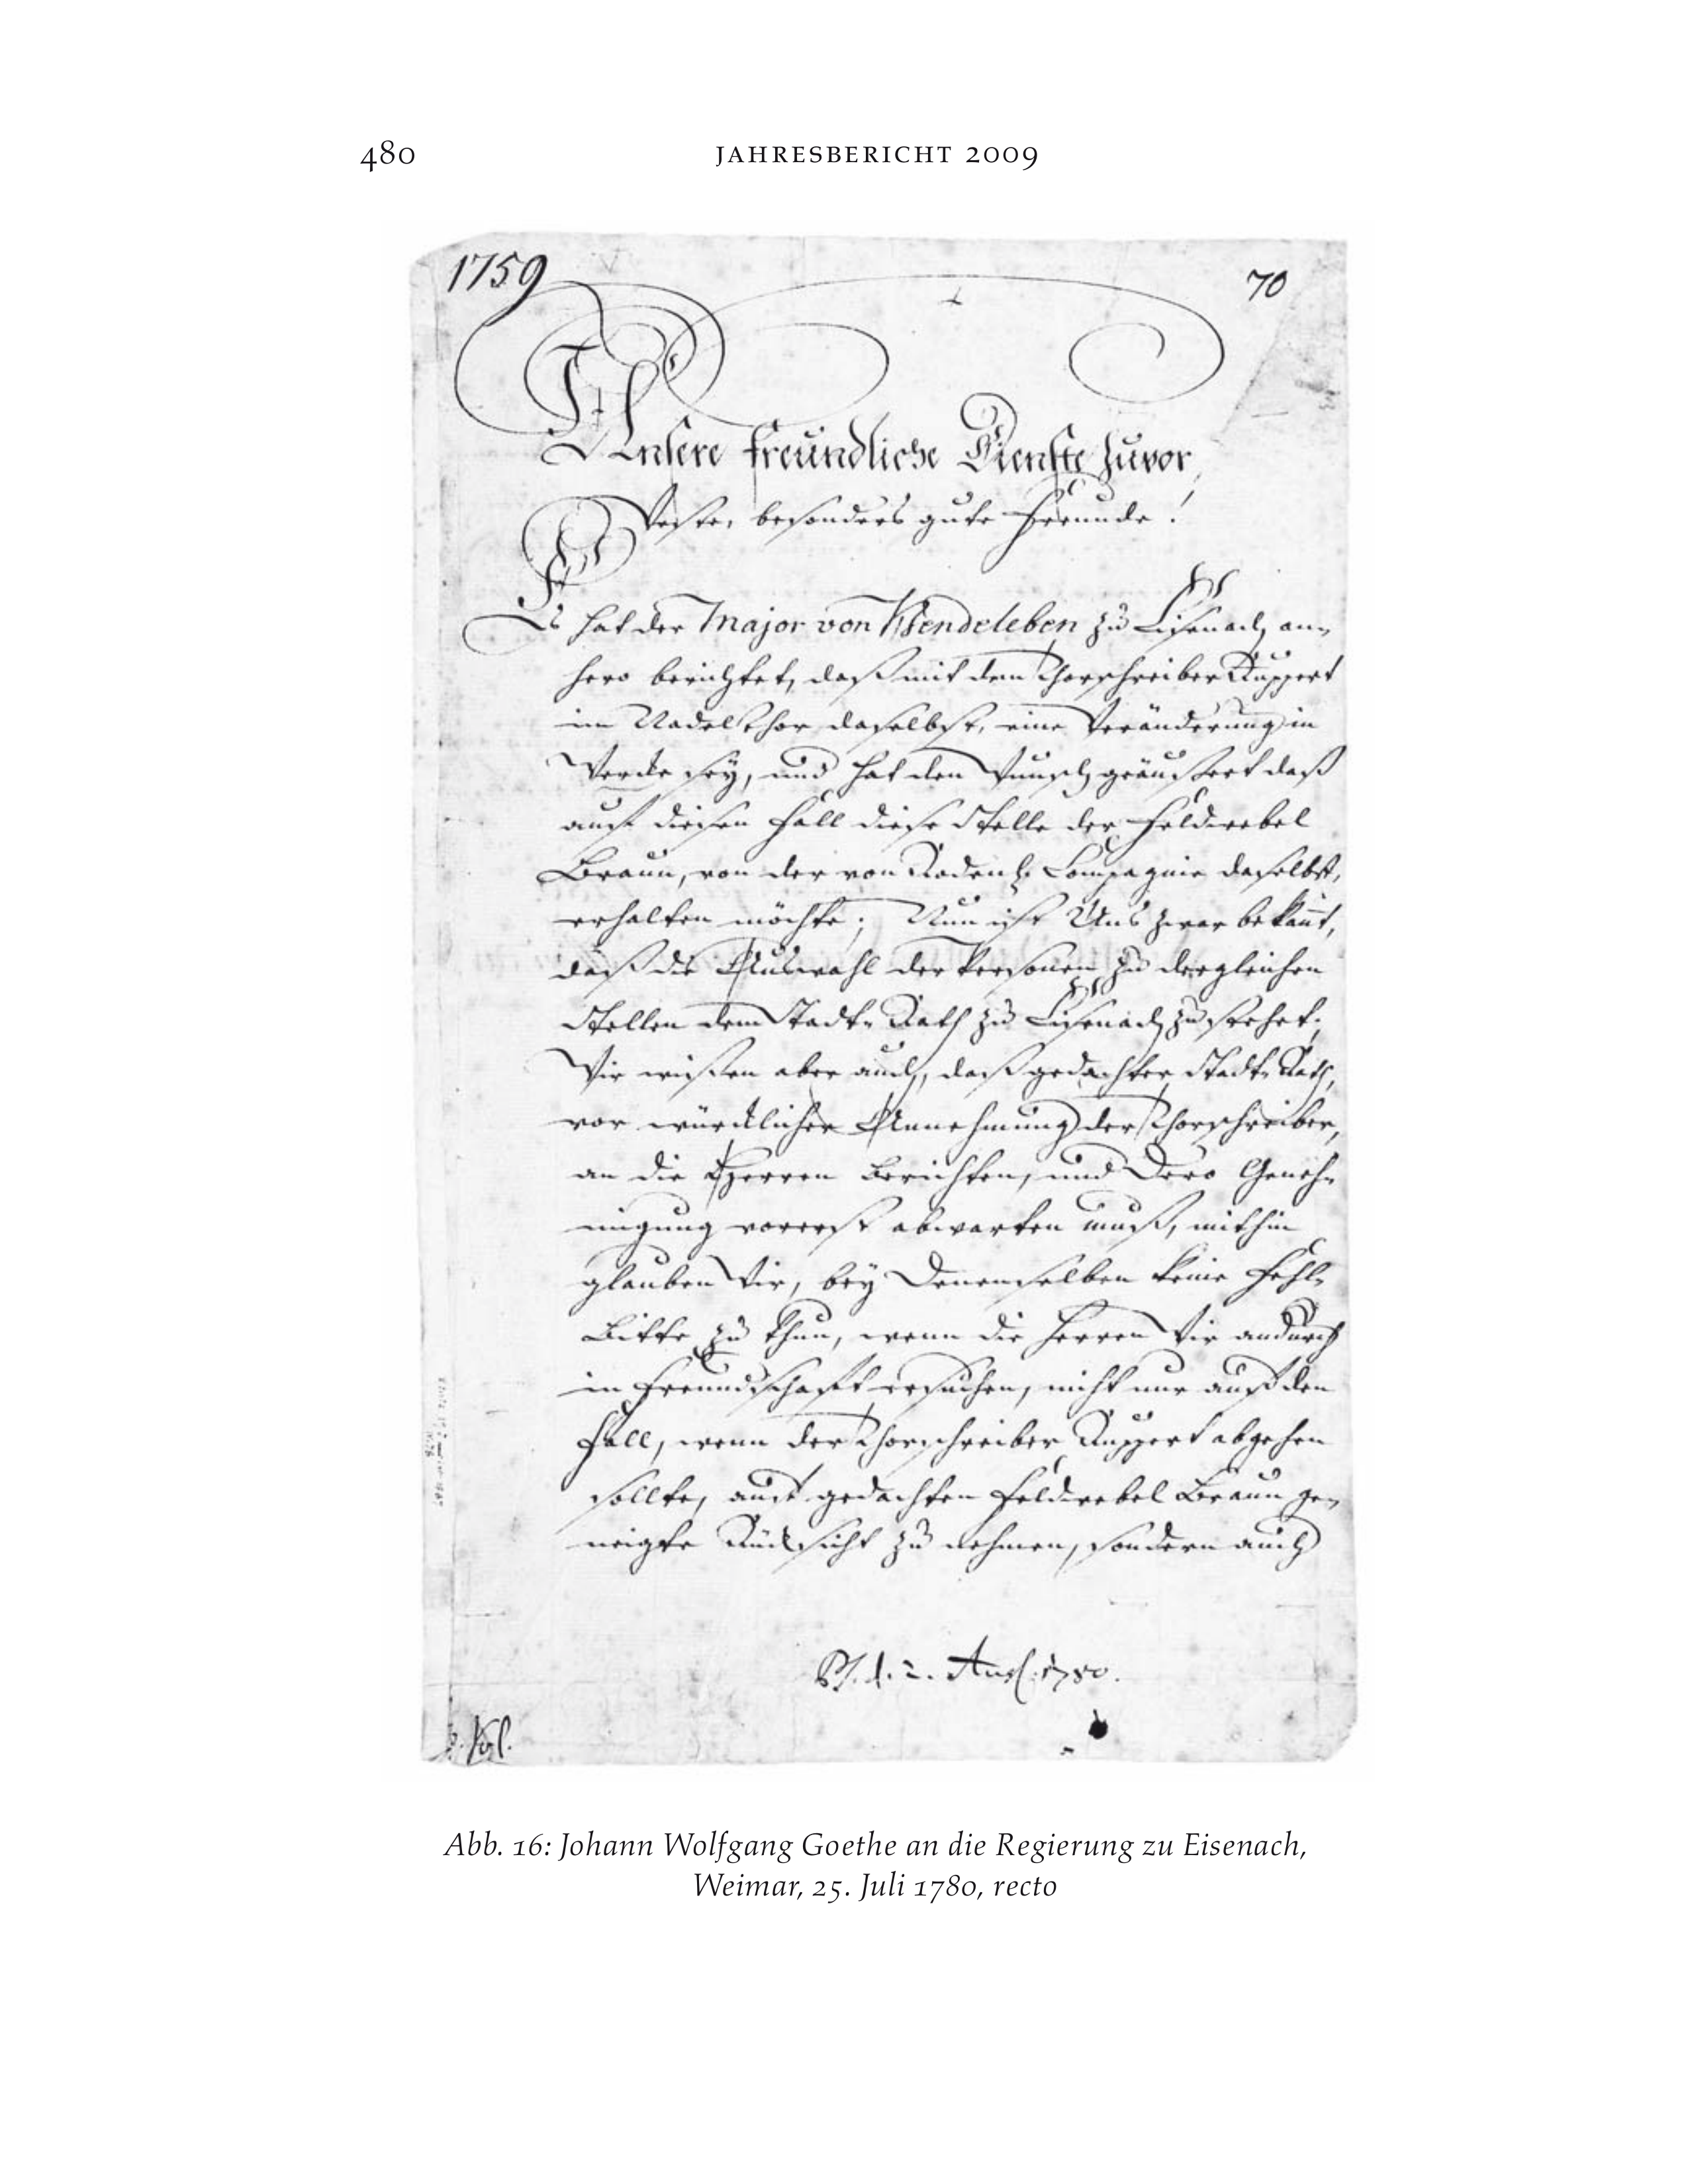 480 JAHRESBERICHT 2009
1759 70
Unsere freündliche Dienste zuvor,
Veste, besonders gute Freunde!
Es hat der Major von Bendeleben zu Eisenach an-
hero berichtet, daß mit dem Thorschreiber Ruppert
im Nadelthor daselbst, eine Veränderung in
Wercke sey, und hat den Wunsch geäussert daß
auf diesen Fall diese Stelle der Feldwebel
Braun, von der von Compagnie daselbst,
erhalten möchte; Nun ist Uns zwar bekant,
daß die Auswahl der Personen zu dergleichen
Stellen dem Stadt-Rath zu Eisenach zustehet;
Wir wissen aber auch, daß gedachter Stadt-Rath,
vor würcklicher Annehmung der Thorschreiber,
an die Herren Berichten, und Dero Geneh-
migung vorerst abwarten muß, mithin
glauben Wir, bey Denenselben keine Fehl-
Bitte zu thun, wenn die Herren Wir andurch
in Freundschaft ersuchen, nicht nur auf den
Fall, wenn der Thorschreiber Ruppert abgehen
sollte, auf gedachten Feldwebel Braun ge-
neigte Rücksicht zu nehmen, sondern auch
d. 2. 1780.
Abb. 16: Johann Wolfgang Goethe an die Regierung zu Eisenach,
Weimar, 25. Juli 1780, recto